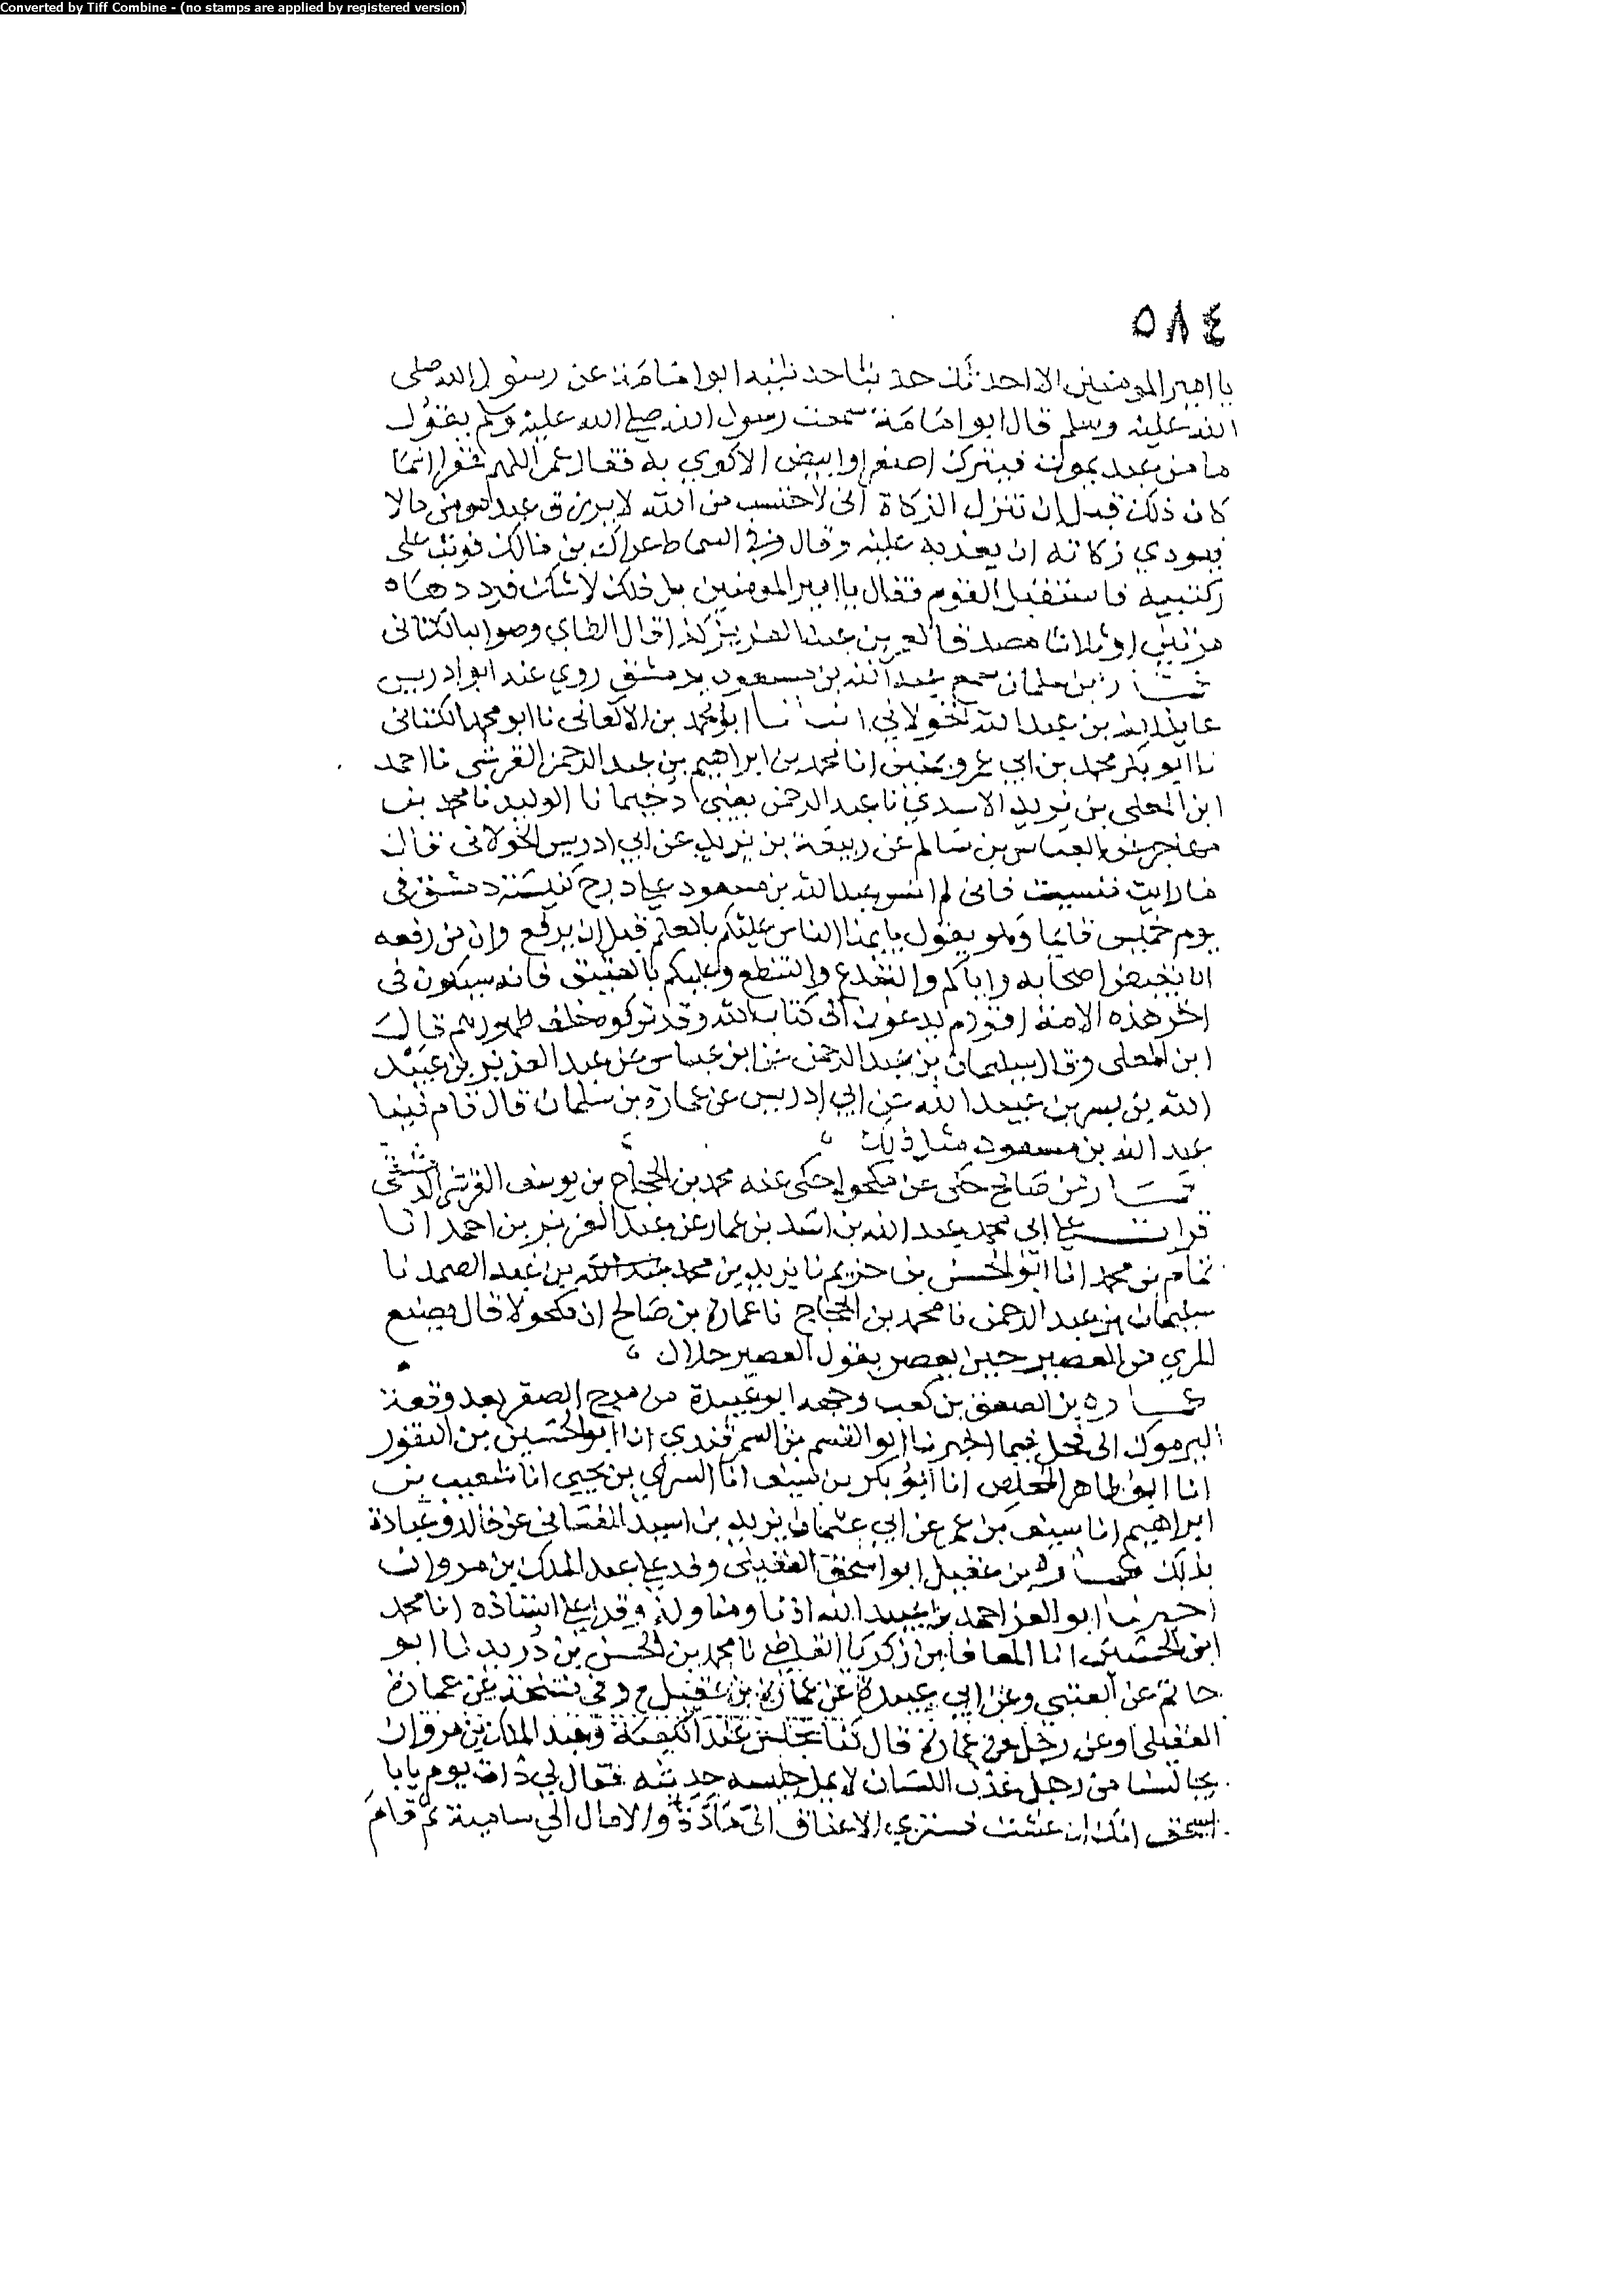 Converted by Tiff Combine - (no stamps are applied by registered version)
٥٨٤
يا امير المومنين الا احدثك حديثا حدثنيه ابوا امامة عن رسول الله صلى
الله عليه وسلم قال ابوا امامة سمعت رسول الله صلى الله عليه وسلم يقول
ما من عبد يموت فيترك اصفر او ابيض الا كوي به فقال عمر اللهم غفرا انما
كان ذلك قبل ان تنزل الزكاة اني لاحتسب من الله لا يرزق عبد مومن مالا
فيودي زكاته ان يعذبه عليه وقال وفي السماط عراك بن مالك فوثب على
ركبتيه فاستقبل القوم فقال يا امير المومنين بل ذلك لا شك فيه رددها
مرتين او ثلاثا فصدقه عمر بن عبد العزيز كذا قال الطاي وصوابه الكناني
عمارة بن سلمان سمع عبد الله بن مسعود بدمشق روي عنه ابو ادريس
عايذ الله بن عبد الله الخولاني انبانا ابو محمد بن الاكفاني نا ابو محمد الكتاني
نا ابو بكر محمد بن ابي عمرو انا محمد بن ابراهيم بن عبد الرحمن القرشي نا احمد
ابن المعلى بن يزيد الاسدي نا عبد الرحمن يعني دحيما نا الوليد نا محمد بن
مهاجر عن العباس بن سالم عن ربيعة بن يزيد عن ابي ادريس الخولاني قال
ما رايت فنسيت فاني لم انس عبد الله بن مسعود على درج كنيسة دمشق في
يوم خميس قايما وهو يقول يا ايها الناس عليكم بالعلم قبل ان يرفع وان من رفعه
ان يقبض اصحابه واياكم والتبدع والتنطع وعليكم بالعتيق فانه سيكون في
اخر هذه الامة اقوام يدعون الى كتاب الله وقد تركوه خلف ظهورهم قال
ابن المعلى وقال سليمان بن عبد الرحمن عن ابن عباس عن عبد العزيز بن عبيد
الله بن بسر بن عبيد الله عن ابي ادريس عن عمارة بن سلمان قال قام فينا
عبد الله بن مسعود مثل ذلك
عمارة بن صالح حكى عن مكحول حكى عنه محمد بن الحجاج بن يوسف القرشي الدمشقي
قرات على ابي محمد عبد الله بن اسد بن عمار عن عبد العزيز بن احمد انا
تمام بن محمد انا ابو الحسن بن حزيم نا يزيد بن محمد بن عبد الصمد نا
سليمان بن عبد الرحمن نا محمد بن الحجاج نا عمارة بن صالح ان مكحولا قال يصنع
المري من العصير حين يعصر يقول العصير حلال
عمارة بن الصعق بن كعب وجهه ابو عبيدة من مرج الصفر بعد وقعة
اليرموك الى فحل فيما اخبرنا ابو القسم بن السمرقندي انا ابو الحسين بن النقور
انا ابو طاهر المخلص انا ابو بكر بن سيف انا السري بن يحيى انا شعيب بن
ابراهيم انا سيف بن عمر عن ابي عثمان يزيد بن اسيد الغساني عن خالد وعبادة
بذلك عمارة بن عقيل ابو اسحق العقيلي وفد على عبد الملك بن مروان
اخبرنا ابو العز احمد بن عبيد الله اذنا ومناولة وقرا على اسناده انا محمد
ابن الحسين انا المعافا بن زكريا القاضي نا محمد بن الحسن بن دريد نا ابو
حاتم عن العتبي وعن ابي عبيدة عن عمارة بن عقيل ح وفي نسخة عن عمارة
العقيلي وعن رجل عن عمارة قال كنا نجلس عند الكعبة وعبد الملك بن مروان
يجالسنا من رجل عذب اللسان لا يمل جليسه حديثه فقال لي ذات يوم يابا
اسحق انك ان عشت فسترى الاعناق الي مادة والامال الي سامية ثم قام